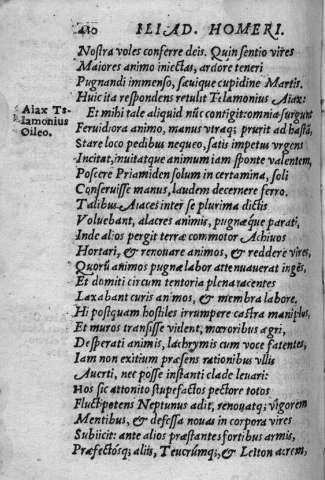 410 ILIAD. HOMERI.
Nostra voles conferre deis. Quin sentio vires
Maiores animo iniectas, ardore teneri
Pugnandi immenso, sæuique cupidine Martis.
Huic ita respondens retulit Telamonius Aiax:
Aiax Te-
lamonius
Oileo.
Et mihi tale aliquid nūc contigit: omnia surgunt
Feruidiora animo, manus vtraq; prurit ad hastā,
Stare loco pedibus nequeo, satis impetus vrgens
Incitat, inuitatque animum iam sponte valentem,
Poscere Priamiden solum in certamina, soli
Conseruisse manus, laudem decernere ferro.
Talibus Aiaces inter se plurima dictis
Voluebant, alacres animis, pugnæque parati,
Inde alios pergit terræ commotor Achiuos
Hortari, & renouare animos, & reddere vires,
Quorū animos pugnæ labor attenuauerat ingēs,
Et domiti circum tentoria plena iacentes
Laxabant curis animos, & membra labore,
Hi postquam hostiles irrumpere castra maniplos,
Et muros transisse vident, mœroribus ægri,
Desperati animis, lachrymis cum voce fatentes,
Iam non exitium præsens rationibus vllis
Auerti, nec posse instanti clade leuari:
Hos sic attonito stupefactos pectore totos
Fluctipetens Neptunus adit, renouatq; vigorem
Mentibus, & defessa nouas in corpora vires
Subiicit: ante alios præstantes fortibus armis,
Præfectósq; aliis, Teucrúmq;, & Leiton acrem,